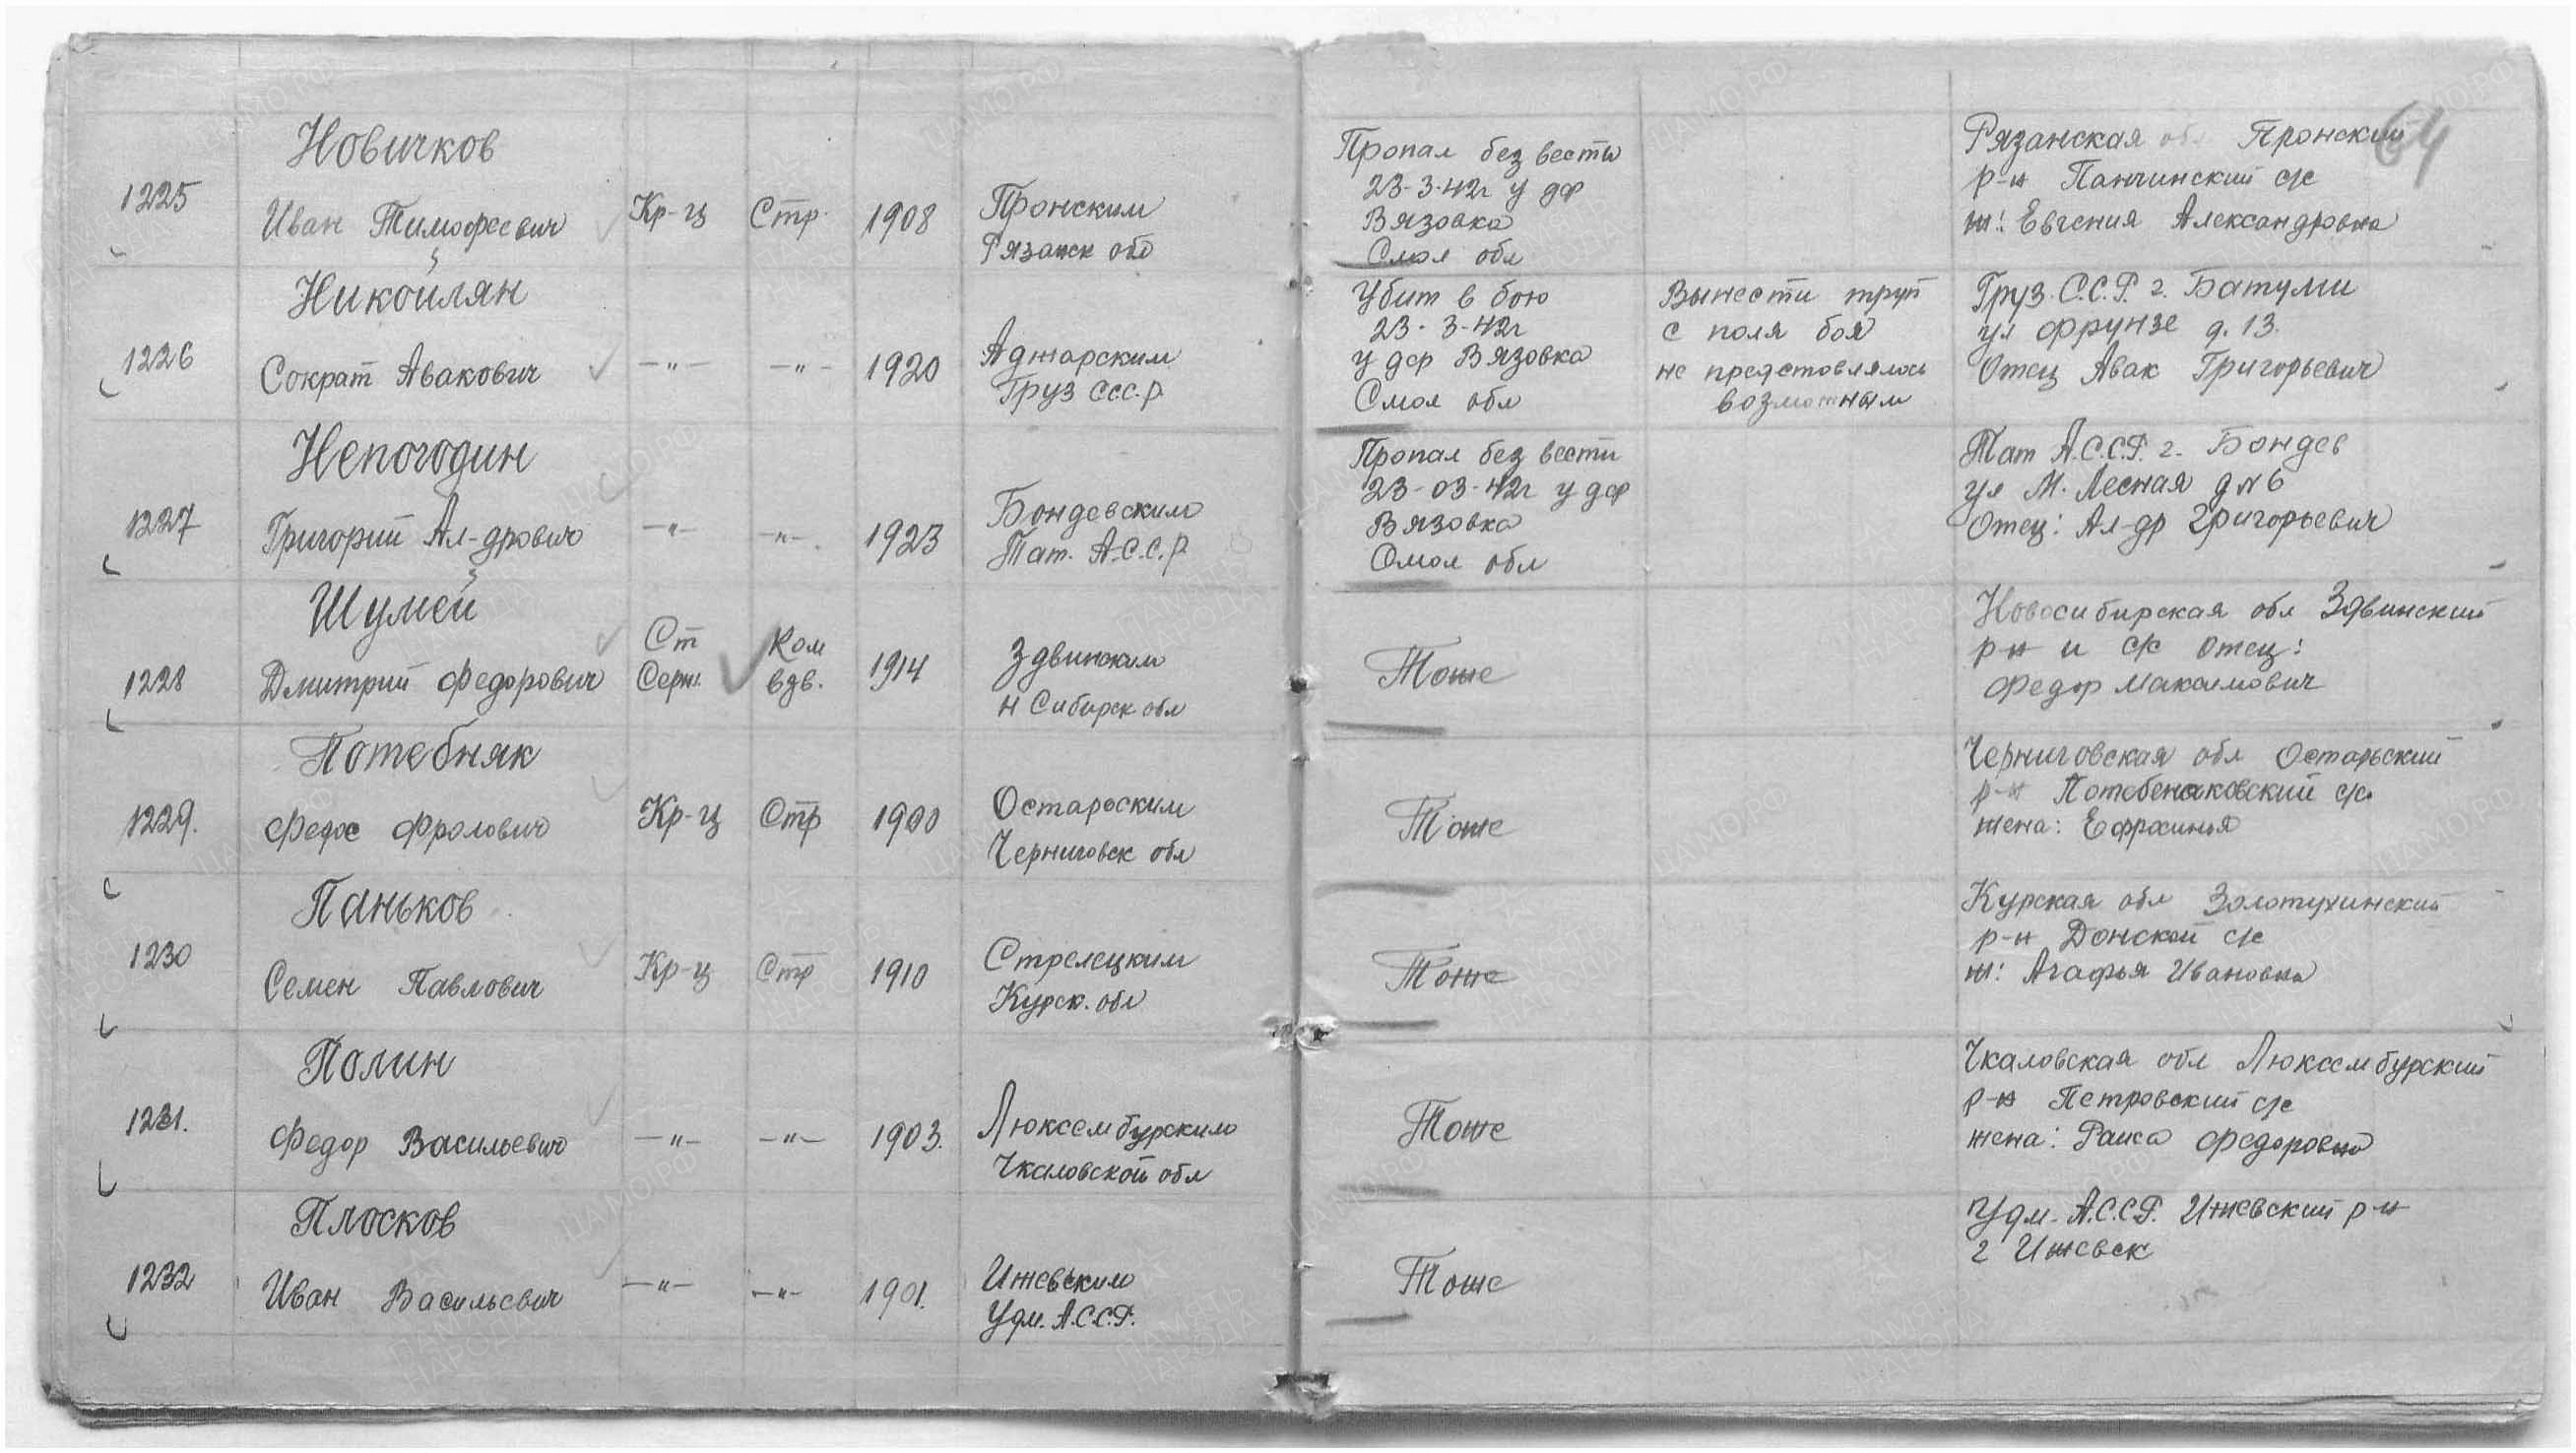 64
Новичков
1225
Иван Тимофеевич
Кр-ц
Стр.
1908
Пронским
Рязанск обл
Пропал без вести
23-3-42г у дер
Вязовка
Смол обл
Рязанская об. Пронский
р-н Панчинский с/с
ж: Евгения Александровна
Никойлян
1226
Сократ Авакович
-"-
-"-
1920
Аджарским
Груз ССС.Р
Убит в бою
23-3-42г
у дер Вязовка
Смол обл
Вынести труп
с поля боя
не представлялось
возможным
Груз. С.С.Р. г. Батуми
ул Фрунзе д. 13.
Отец Авак Григорьевич
Непогодин
1227
Григорий Ал-дрович
-"-
-"-
1923
Бондевским
Тат. А.С.С.Р
Пропал без вести
23-03-42г у дер
Вязовка
Смол обл
Тат А.С.С.Р. г. Бондев
ул М. Лесная д N 6
Отец: Ал-др Григорьевич
Шумей
1228
Дмитрий Федорович
Ст
Серж.
Ком
вдв.
1914
Здвинским
Н Сибирск обл
Тоже
Новосибирская обл Здвинский
р-н и с/с Отец:
Федор Максимович
Потебняк
1229.
Федос Фролович
Кр-ц
Стр
1900
Остароским
Черниговск обл
Тоже
Черниговская обл Остарьский
р-н Потебенаковский с/с
жена: Ефросинья
Паньков
1230
Семен Павлович
Кр-ц
Стр
1910
Стрелецким
Курск. обл
Тоже
Курская обл Золотухинский
р-н Донской с/с
ж: Агафья Ивановна
Полин
1231.
Федор Васильевич
-"-
-"-
1903.
Люксембурским
Чкаловской обл
Тоже
Чкаловская обл Люксембурский
р-н Петровский с/с
жена: Раиса Федоровна
Плосков
1232
Иван Васильевич
-"-
-"-
1901.
Ижевским
Удм. А.С.С.Р.
Тоже
Удм. А.С.С.Р. Ижевский р-н
г Ижевск